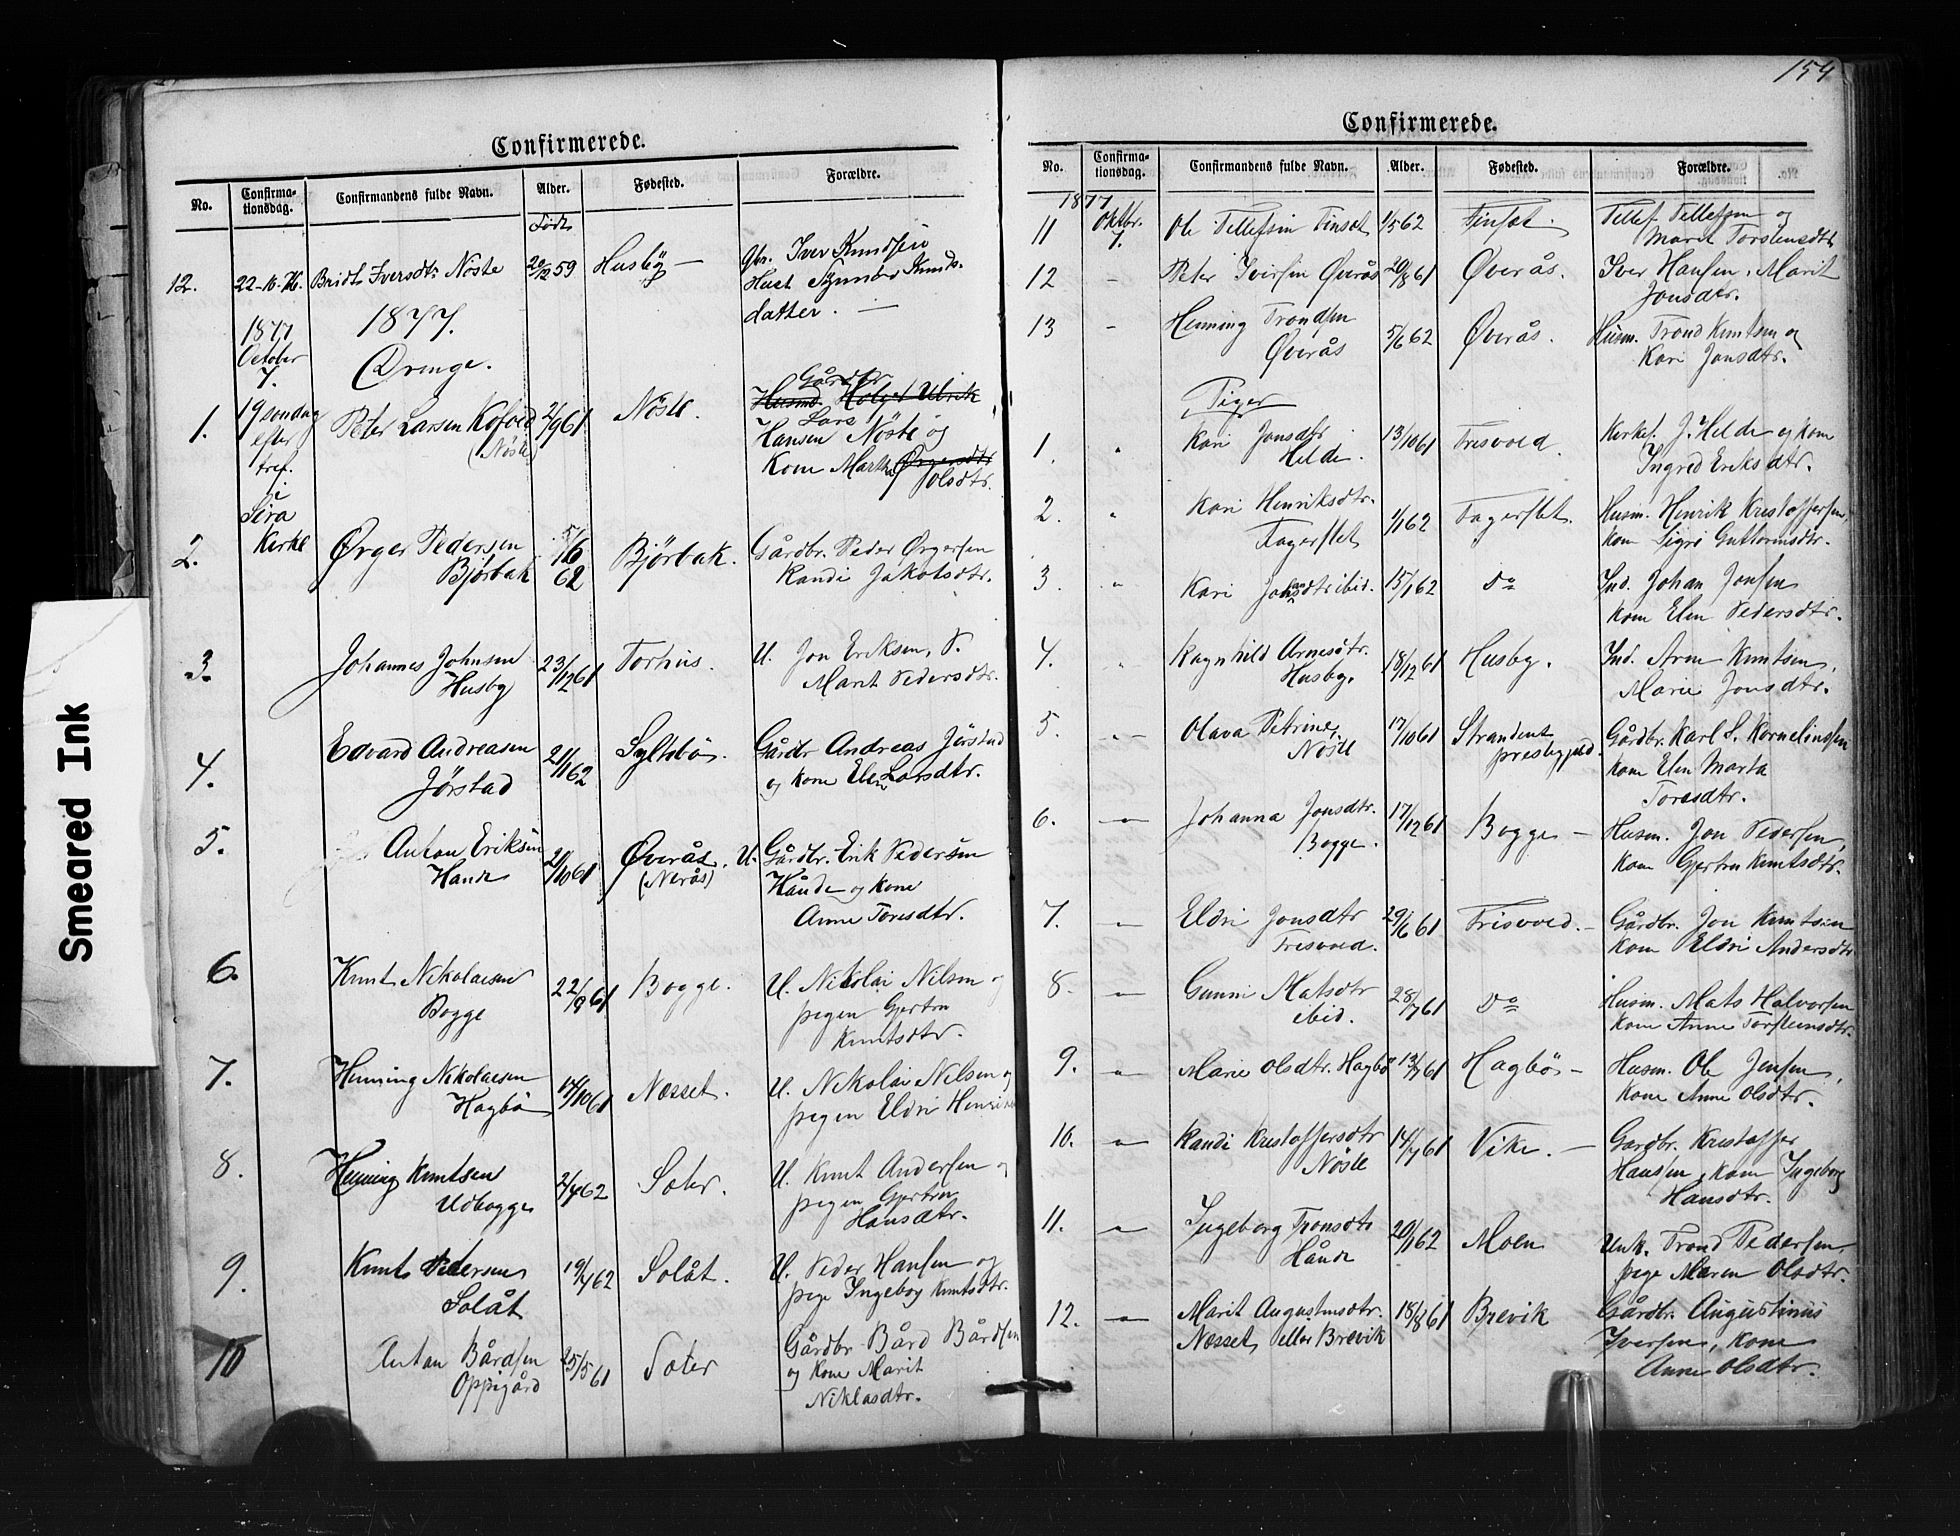 Smeared Ink
Confirmerede.
No. Confirma-tionsdag. Confirmandens fulde Navn. Alder. Fødested. Forældre.
Født
12. 22-10-76. Bridt Iversdtr Nøste 20/12 59 Husby — Gbr. Iver Knudsen
Hust Synnøv Knuds-
datter. —
1877 October 7. 1877.
Drenge.
1. 19 søndag efter tref. i Sira Kirke Peter Larsen Kofoed (Nøste) 2/9 61 Nøste Gårdbr
Husmd. Holger Ulrik
Lars
Hansen Nøste og
Kone Marthe Ørgersdtr
Jolsdtr.
2. Ørger Pedersen Bjørbak 5/6 62 Bjørbak. Gårdbr. Peder Ørgersen
Randi Jakobsdtr.
3. Johannes Johnsen Husby 23/12 61 Torhus. U. Jon Eriksen, P.
Marit Pedersdtr.
4. Edvard Andreasen Jørstad 21/1 62 Syltebø. Gårdbr Andreas Jørstad
og kone Elen Larsdtr.
5. Anton Eriksen Hånde 20/10 61 Øverås. (Nerås) U. Gårdbr. Erik Pedersen
Hånde og kone
Anne Toresdtr.
6. Knut Nikolaisen Bogge 22/9 61 Bogge. U. Nikolai Nilsen og
pigen Gjertru
Knutsdtr.
7. Henning Nikolaisen Hagbø 14/10 61 Næsset. U. Nikolai Nilsen og
pigen Eldri
8. Henning Knutsen Udbogge 2/4 62 Soter. U. Knut Andersen og
pigen Gjertru
Hansdtr.
9. Knut Pedersen Solåt 19/4 62 Solåt. U. Peder Hansen og
pige Ingebor Knutsdtr.
10 Anton Bårdsen Oppigård 25/5 61 Soter Gårdbr Bård Bårdsen
og kone Marit
Niklasdtr.
154
Confirmerede.
No. Confirma-tionsdag. Confirmandens fulde Navn. Alder. Fødested. Forældre.
1877
11 Oktbr. 7. Ole Tellefsen Tinsæt 1/5 62 Finsæt. Tellef Tellefsen og
Marit Torstensdtr
12 — Peter Iversen Øverås 20/8 61 Øverås. Iver Hansen, Marit
Jonsdtr.
13 — Henning Trondsen Øverås 5/6 62 Øverås. Husm. Trond Knutsen og
Kari Jonsdtr.
Piger
1. " Kari Jonsdtr Helde. 13/10 61 Frisvold. Kirkes. J. Helde og kone
Ingred Eriksdtr.
2. " Kari Henriksdtr. Fagerslet 1/1 62 Fagerslet. Husm. Henrik Kristoffersen,
kone Sigri Guttormsdtr.
3 " Kari Johansdtr ibid. 15/1 62 Do Ind. Johan Jonsen
kone Elen Pedersdtr.
4. " Ragnhild Arnesdtr. Husby. 18/12 61 Husby. Ind. Arne Knutsen,
Marie Jonsdtr.
5. — Olava Petrine Nøste 17/10 61 Strandens presbygjeld. Gårdbr. Karl S. Kornelinssen
kone Elen Marta
Toresdtr.
6. — Johanna Jonsdtr. Bogge. 17/12 61 Bogge — Husm. Jon Pedersen,
kone Gjertru Knutsdtr.
7. — Eldri Jonsdtr Frisvold. 29/6 61 Frisvold. — Gårdbr. Jon Knutsen
kone Eldri Andersdtr
8. — Gunni Matsdtr ibid. 28/7 61 Do Husm. Mats Halvorsen
kone Anne Torsteinsdtr.
9. — Marie Olsdtr. Hagbø 13/7 61 Hagbø — Husm. Ole Jensen,
kone Anne Olsdtr.
10. — Randi Kristoffersdtr Nøste 14/7 61 Vike. — Gardbr. Kristoffer
Hansen, kone Ingeborg
Hansdtr.
11. — Ingeborg Tronsdtr Hånde 20/1 62 Moen Unk. Trond Pedersen,
pige Maren Olsdtr.
12. — Marit Augustinusdtr. Næsset eller Brevik 18/8 61 Brevik Gårdbr. Augustinus
Iversen, kone
Anne Olsdtr.